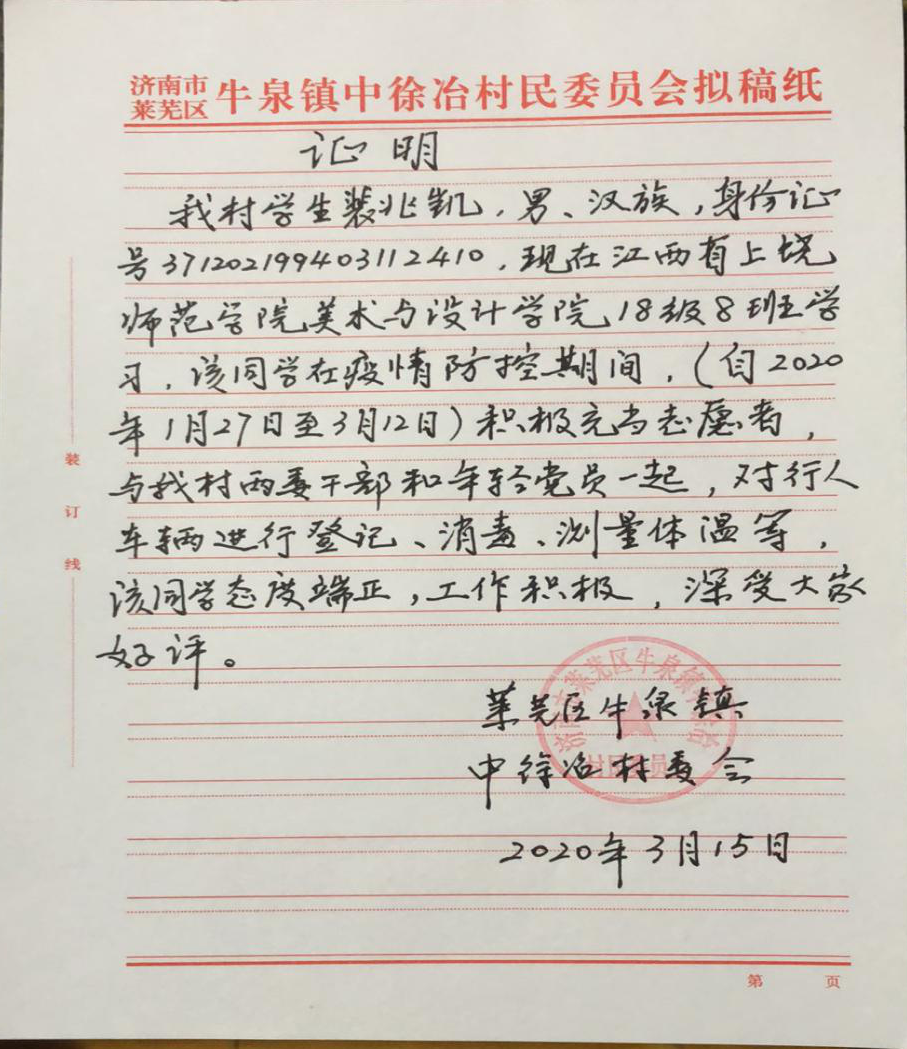 济南市
莱芜区 牛泉镇中徐冶村民委员会拟稿纸
证明
我村学生裴兆凯，男、汉族，身份证
号371202199403112410，现在江西省上饶
师范学院美术与设计学院18级8班学
习，该同学在疫情防控期间，（自2020
年1月27日至3月12日）积极充当志愿者，
与我村两委干部和年轻党员一起，对行人
车辆进行登记、消毒、测量体温等，
该同学态度端正，工作积极，深受大家
好评。
莱芜区牛泉镇
中徐冶村委会
2020年3月15日
装
订
线
第 页